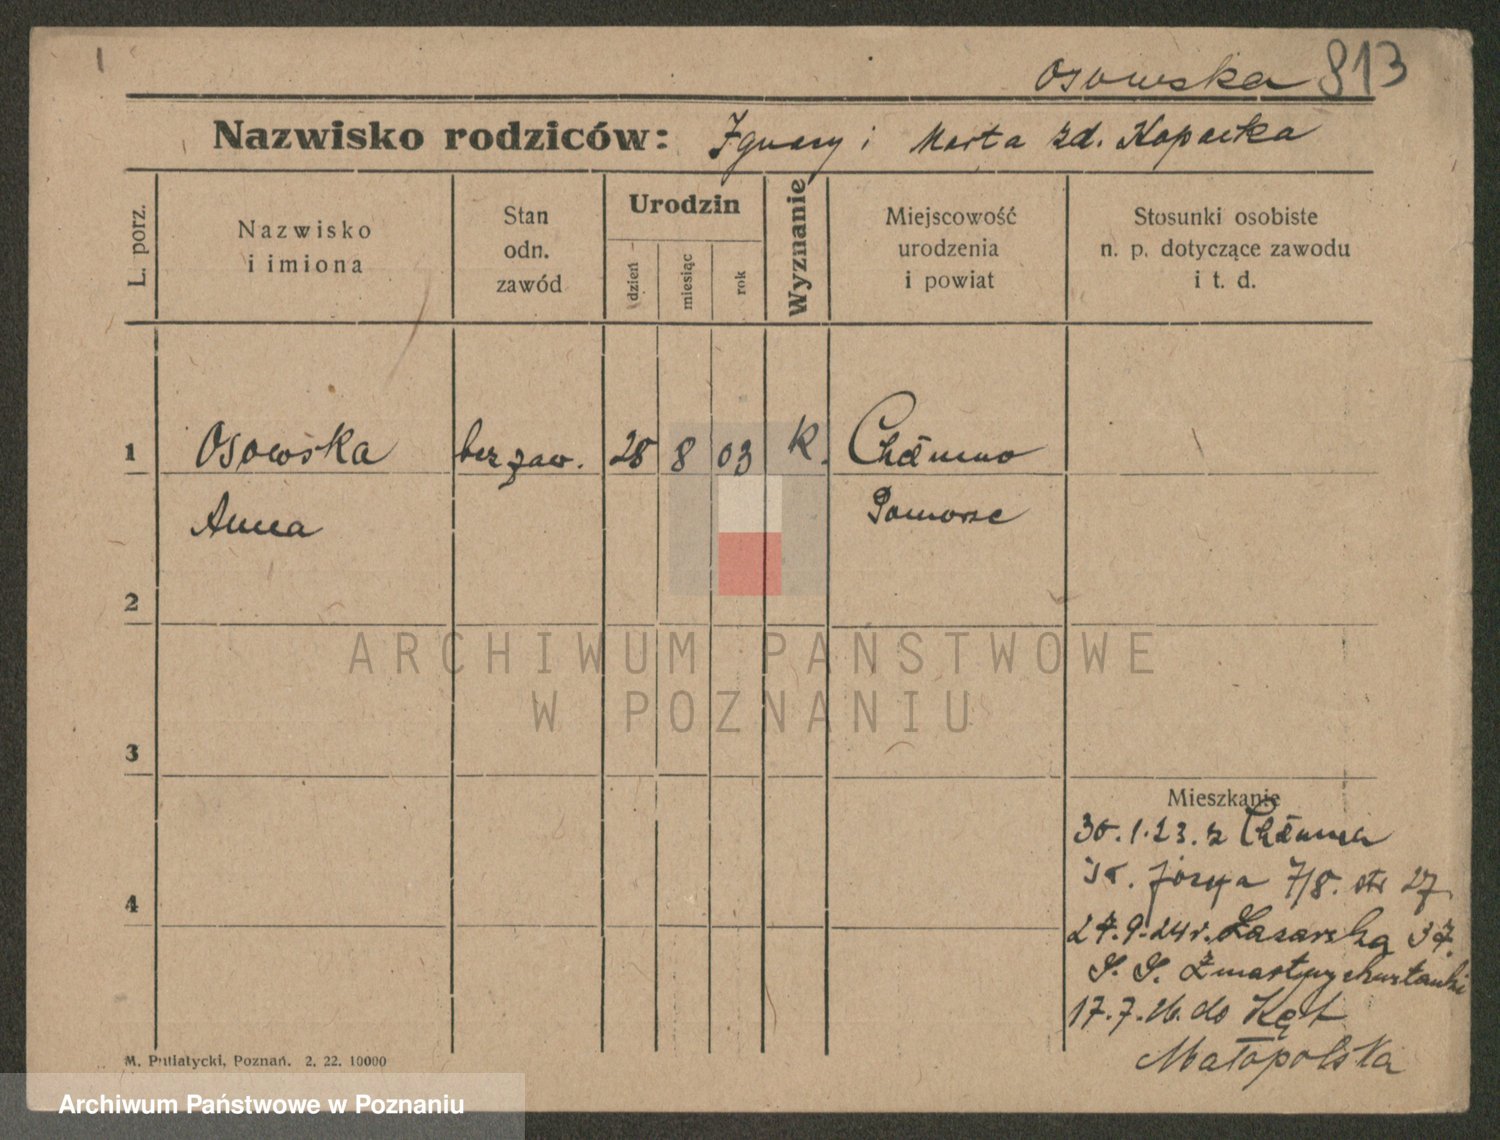 Osowska 813
Nazwisko rodziców: Ignacy i Marta zd. Kopacka
L. porz.
Nazwisko
i imiona
Stan
odn.
zawód
Urodzin
dzień
miesiąc
rok
Wyznanie
Miejscowość
urodzenia
i powiat
Stosunki osobiste
n. p. dotyczące zawodu
i t. d.
1 Osowska bez zaw. 28 8 03 K. Chełmno
Anna Pomorze
2
3
4
Mieszkanie
30.1.23. z Chełmna
św. Józefa 7/8. str 27
27.9.24r. Łazarska 37.
S. S. Zmartwychwstanki
17.7.26. do Kęt
Małopolska
M. Putiatycki, Poznań. 2. 22. 10000
ARCHIWUM PAŃSTWOWE
W POZNANIU
Archiwum Państwowe w Poznaniu